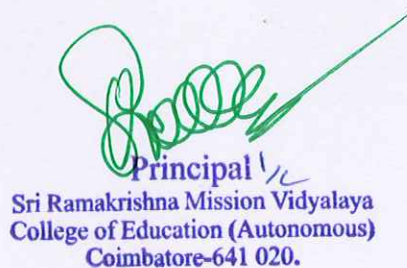 Principal I/c
Sri Ramakrishna Mission Vidyalaya
College of Education (Autonomous)
Coimbatore-641 020.